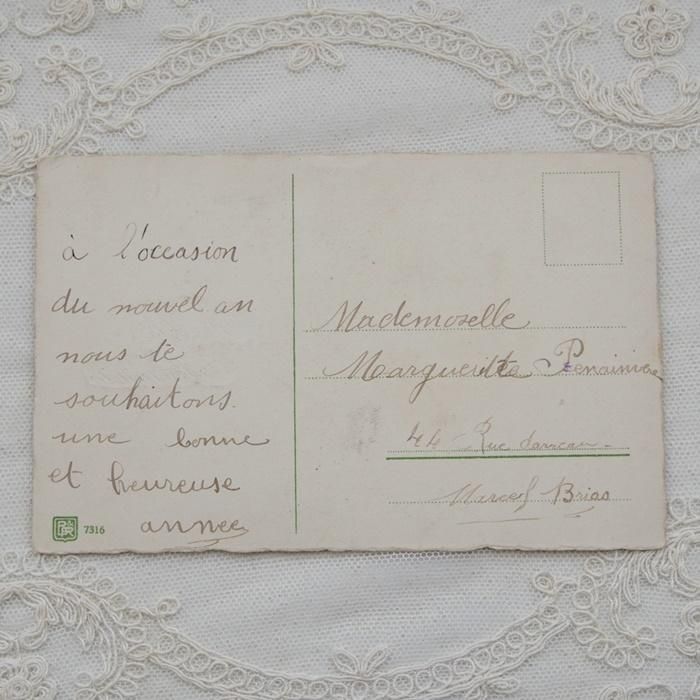 à l'occasion
du nouvel an
nous te
souhaitons
une bonne
et heureuse
annee
7316
Mademoselle
Marguerite
44 Rue
Marcel Brias